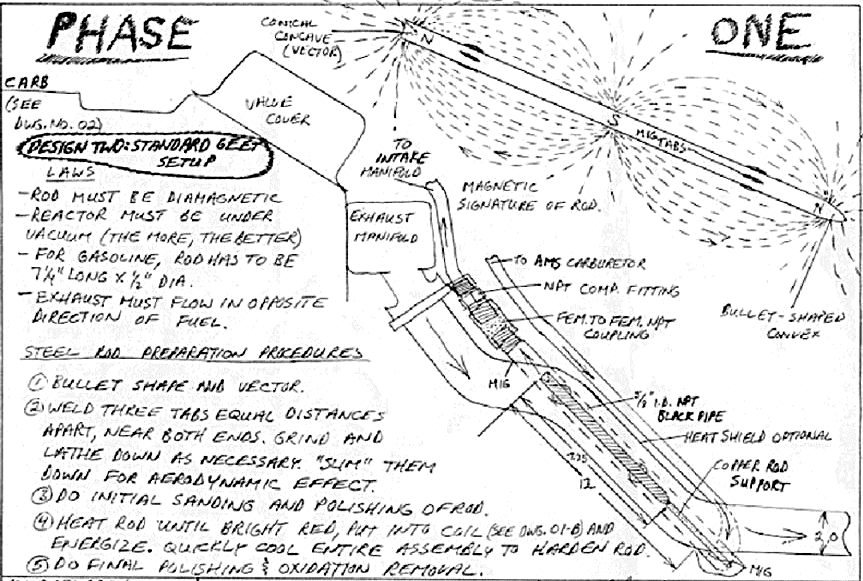 PHASE ONE
CONICAL
CONCAVE
(VECTOR)
N
S
MIG TABS
N
CARB
(SEE
DWG. NO. 02)
VALVE
COVER
DESIGN TWO: STANDARD GEET
SETUP
TO
INTAKE
MANIFOLD
MAGNETIC
SIGNATURE OF ROD.
BULLET-SHAPED
CONVEX
LAWS
- ROD MUST BE DIAMAGNETIC
- REACTOR MUST BE UNDER
VACUUM (THE MORE, THE BETTER)
- FOR GASOLINE, ROD HAS TO BE
7 1/4" LONG X 1/2" DIA.
- EXHAUST MUST FLOW IN OPPOSITE
DIRECTION OF FUEL.
EXHAUST
MANIFOLD
TO AMS CARBURETOR
NPT COMP. FITTING
FEM. TO FEM. NPT
COUPLING
MIG
I.D. NPT
BLACK PIPE
HEAT SHIELD OPTIONAL
COPPER ROD
SUPPORT
12
2.0
MIG
STEEL ROD PREPARATION PROCEDURES
① BULLET SHAPE AND VECTOR.
② WELD THREE TABS EQUAL DISTANCES
APART, NEAR BOTH ENDS. GRIND AND
LATHE DOWN AS NECESSARY. "SLIM" THEM
DOWN FOR AERODYNAMIC EFFECT.
③ DO INITIAL SANDING AND POLISHING OF ROD.
④ HEAT ROD UNTIL BRIGHT RED, PUT INTO COIL (SEE DWG. 01-B) AND
ENERGIZE. QUICKLY COOL ENTIRE ASSEMBLY TO HARDEN ROD.
⑤ DO FINAL POLISHING & OXIDATION REMOVAL.